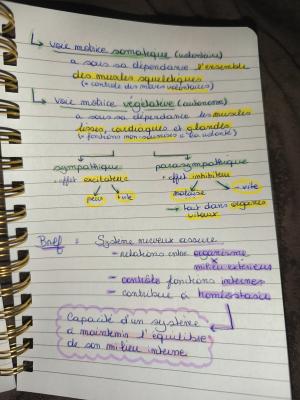 ↳ voie motrice somatique (volontaire)
a sous sa dépendance l'ensemble
des muscles squelettiques
(= contrôle des muscles volontaires)
↳ voie motrice végétative (autonome)
a sous sa dépendance les muscles
lisses, cardiaques et glandes
(= fonctions non soumises à la volonté)
sympathique parasympathique
• effet excitateur • effet inhibiteur
peur vite vite
→ tout dans organes
vitaux
Bref = Système nerveux assure
- relations entre organisme
x
milieu extérieurs
- contrôle fonctions internes
- contribue à homéostasie
Capacité d'un système
à maintenir l'équilibre
de son milieu interne